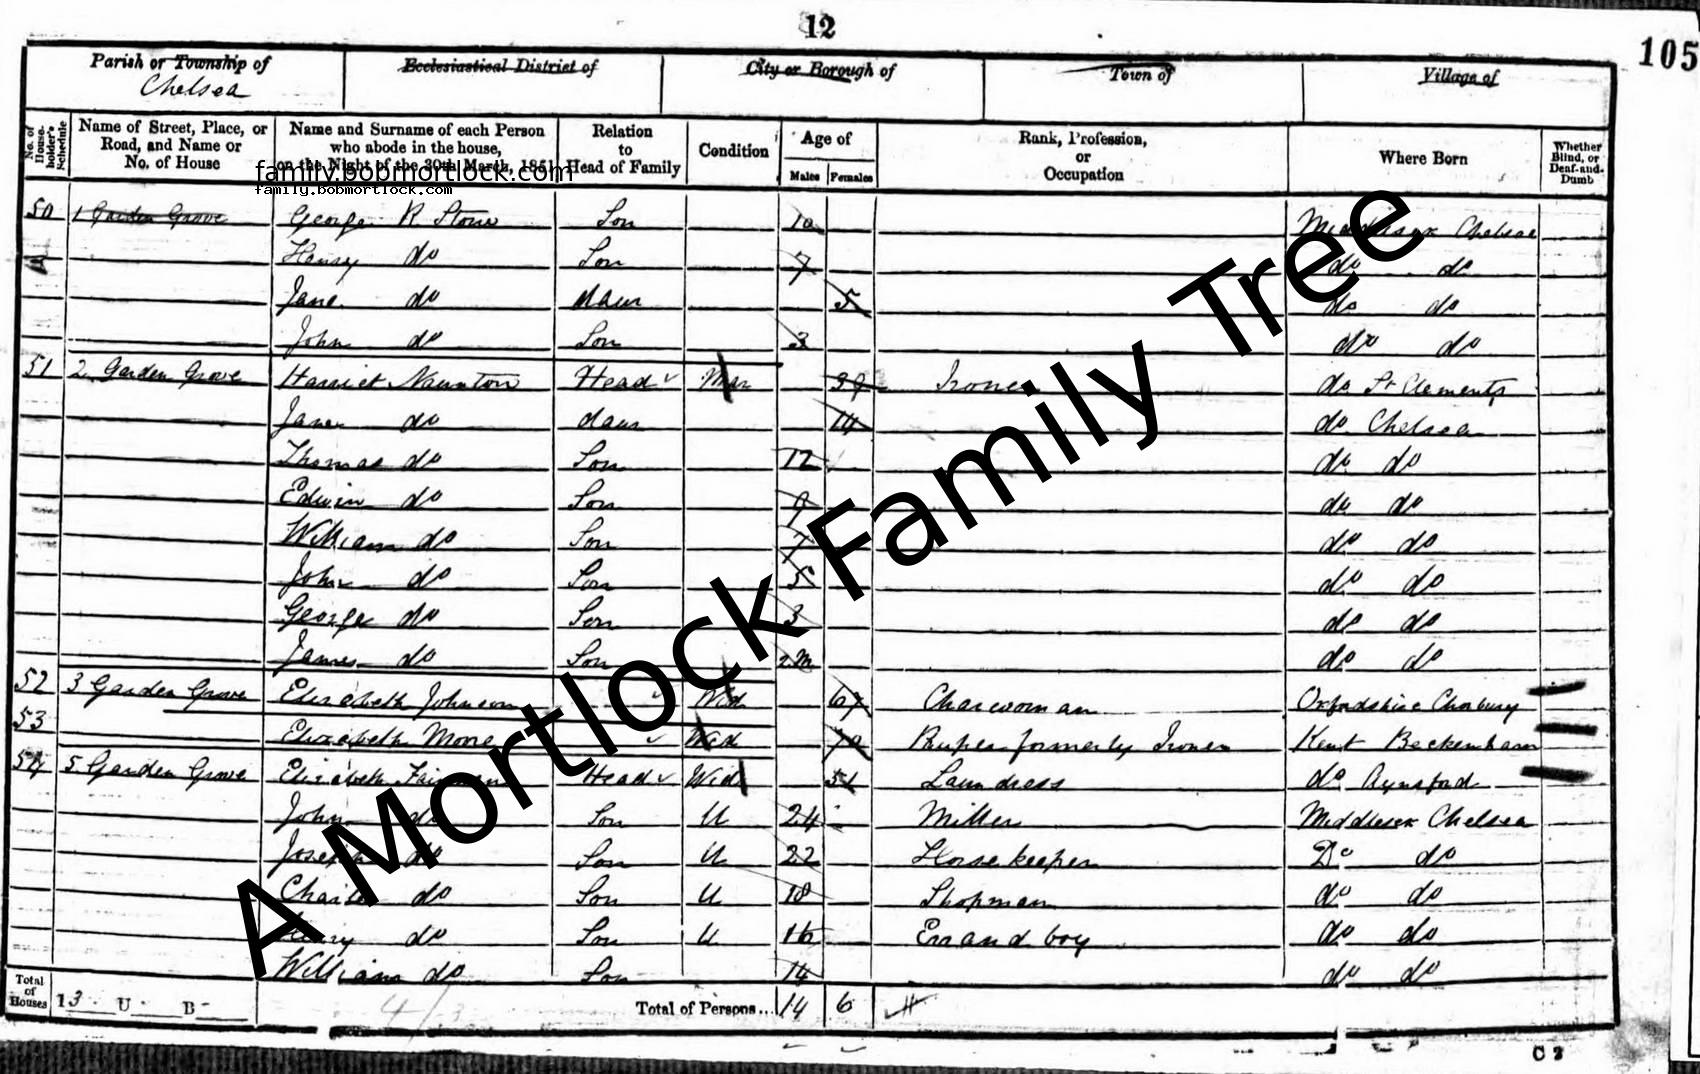 12
105
Parish or Township of
Chelsea
Ecclesiastical District of
City or Borough of
Town of
Village of
No. of House-holder's Schedule
Name of Street, Place, or Road, and Name or No. of House
Name and Surname of each Person who abode in the house, on the Night of the 30th March, 1851
Relation to Head of Family
Condition
Age of
Males Females
Rank, Profession, or Occupation
Where Born
Whether Blind, or Deaf-and-Dumb
family.bobmortlock.com
family.bobmortlock.com
50 1 Garden Grove George R Stone Son 10 Middlesex Chelsea
Henry do Son 7 do do
Jane do daur 5 do do
John do Son 3 do do
51 2 Garden Grove Harriet Naunton Head Mar 39 Ironer do St Clements
Jane do daur 14 do Chelsea
Thomas do Son 12 do do
Edwin do Son 9 do do
William do Son 7 do do
John do Son 5 do do
George do Son 3 do do
James do Son 2m do do
52 3 Garden Grove Elizabeth Johnson Wid 67 Charwoman Oxfordshire
53 Elizabeth Moore Wid Pauper formerly Ironer Kent Beckenham
54 5 Garden Grove Elizabeth Head Wid 51 Laundress do
John do Son U 24 Miller Middlesex Chelsea
Joseph do Son U 22 Horsekeeper Do do
Charles do Son U 18 Shopman do do
Henry do Son U 16 Errand boy do do
William do Son 14 do do
Total of Houses 13 U B
Total of Persons... 14 6
C 2
A Mortlock Family Tree